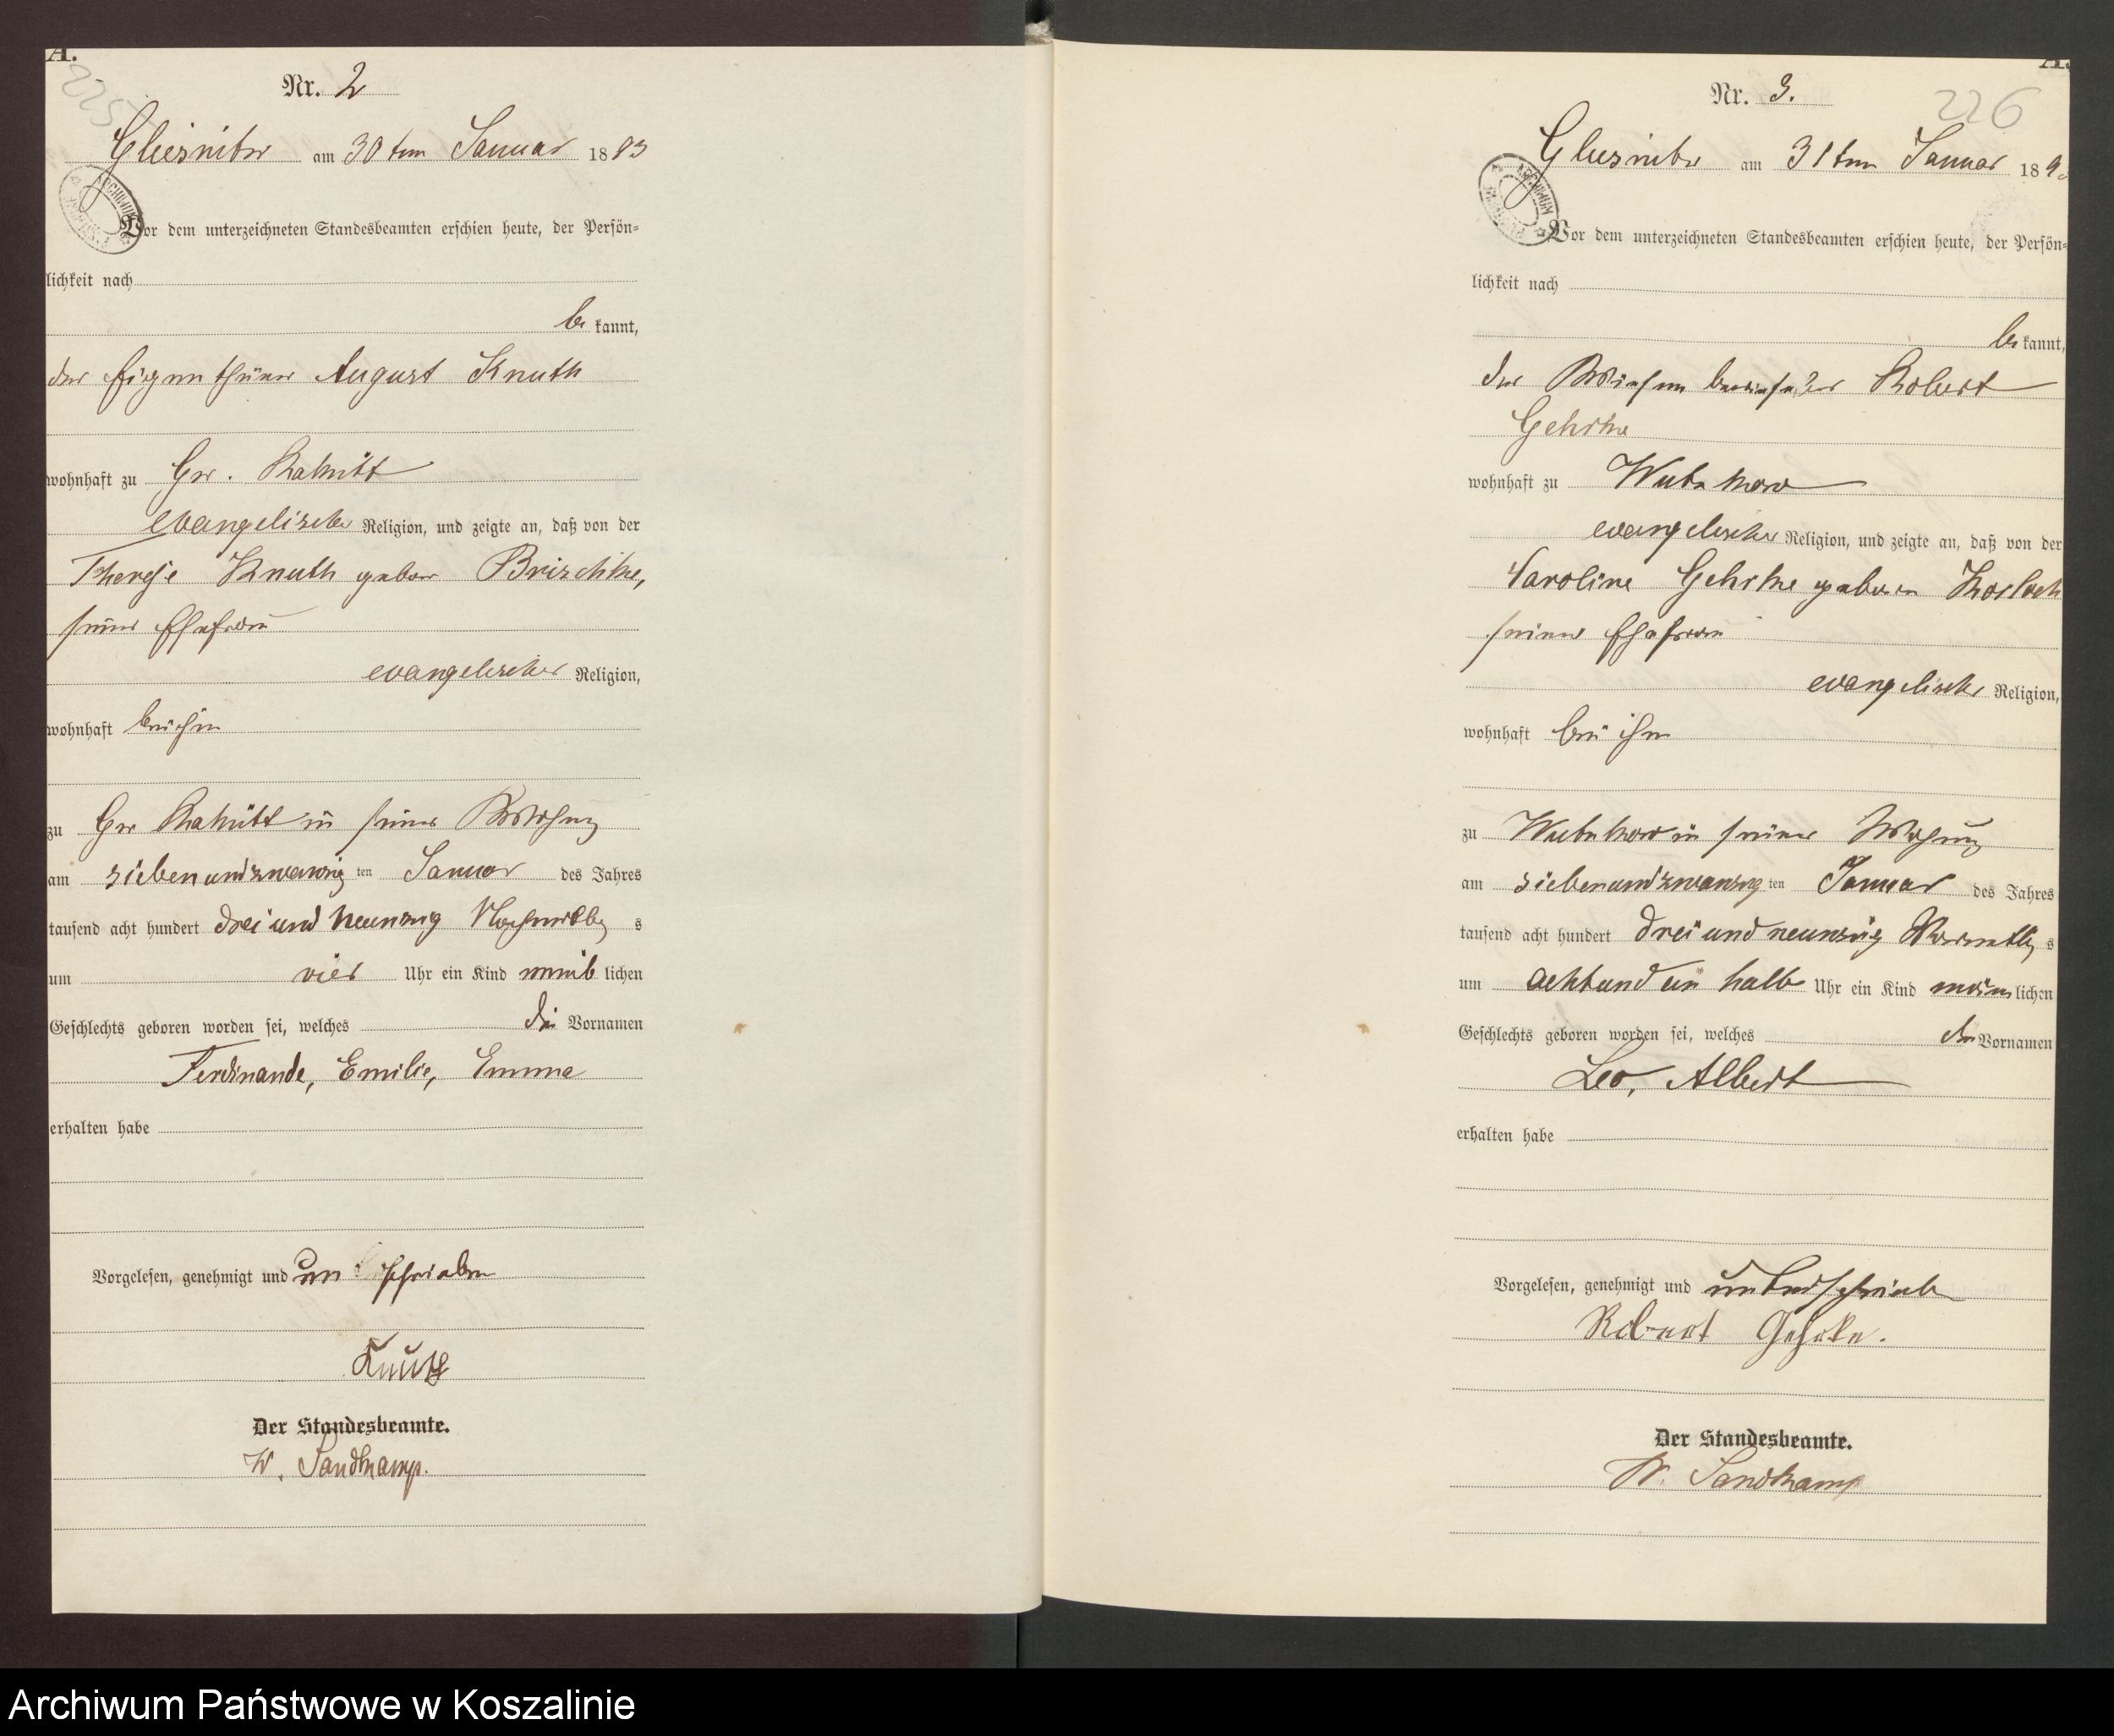 A.
225
Nr. 2
Gliesnitz am 30ten Januar 1893
Vor dem unterzeichneten Standesbeamten erschien heute, der Persön-
lichkeit nach
be kannt,
der Eigenthümer August Knuth
wohnhaft zu Gr. Rakitt
evangelischer Religion, und zeigte an, daß von der
Therese Knuth geboren Brischke,
seiner Ehefrau
evangelischer Religion,
wohnhaft bei ihm
zu Gr Rakitt in seiner Wohnung
am siebenundzwanzig ten Januar des Jahres
tausend acht hundert drei und neunzig Nachmittag s
um vier Uhr ein Kind weib lichen
Geschlechts geboren worden sei, welches die Vornamen
Ferdinande, Emilie, Emma
erhalten habe
Vorgelesen, genehmigt und unterschrieben
Knuth
Der Standesbeamte.
W. Sandkamp.
A.
226
Nr. 3.
Gliesnitz am 31ten Januar 189
Vor dem unterzeichneten Standesbeamten erschien heute, der Persön-
lichkeit nach
be kannt,
der Robert
Gehrke
wohnhaft zu
evangelischer Religion, und zeigte an, daß von der
Caroline Gehrke geboren
seiner Ehefrau
evangelischer Religion,
wohnhaft bei ihm
zu in seiner Wohnung
am siebenundzwanzig ten Januar des Jahres
tausend acht hundert drei und neunzig Vormittag s
um acht und ein halb Uhr ein Kind männ lichen
Geschlechts geboren worden sei, welches die Vornamen
Leo, Albert
erhalten habe
Vorgelesen, genehmigt und unterschrieben
Robert Gehrke.
Der Standesbeamte.
W. Sandkamp
Archiwum Państwowe w Koszalinie